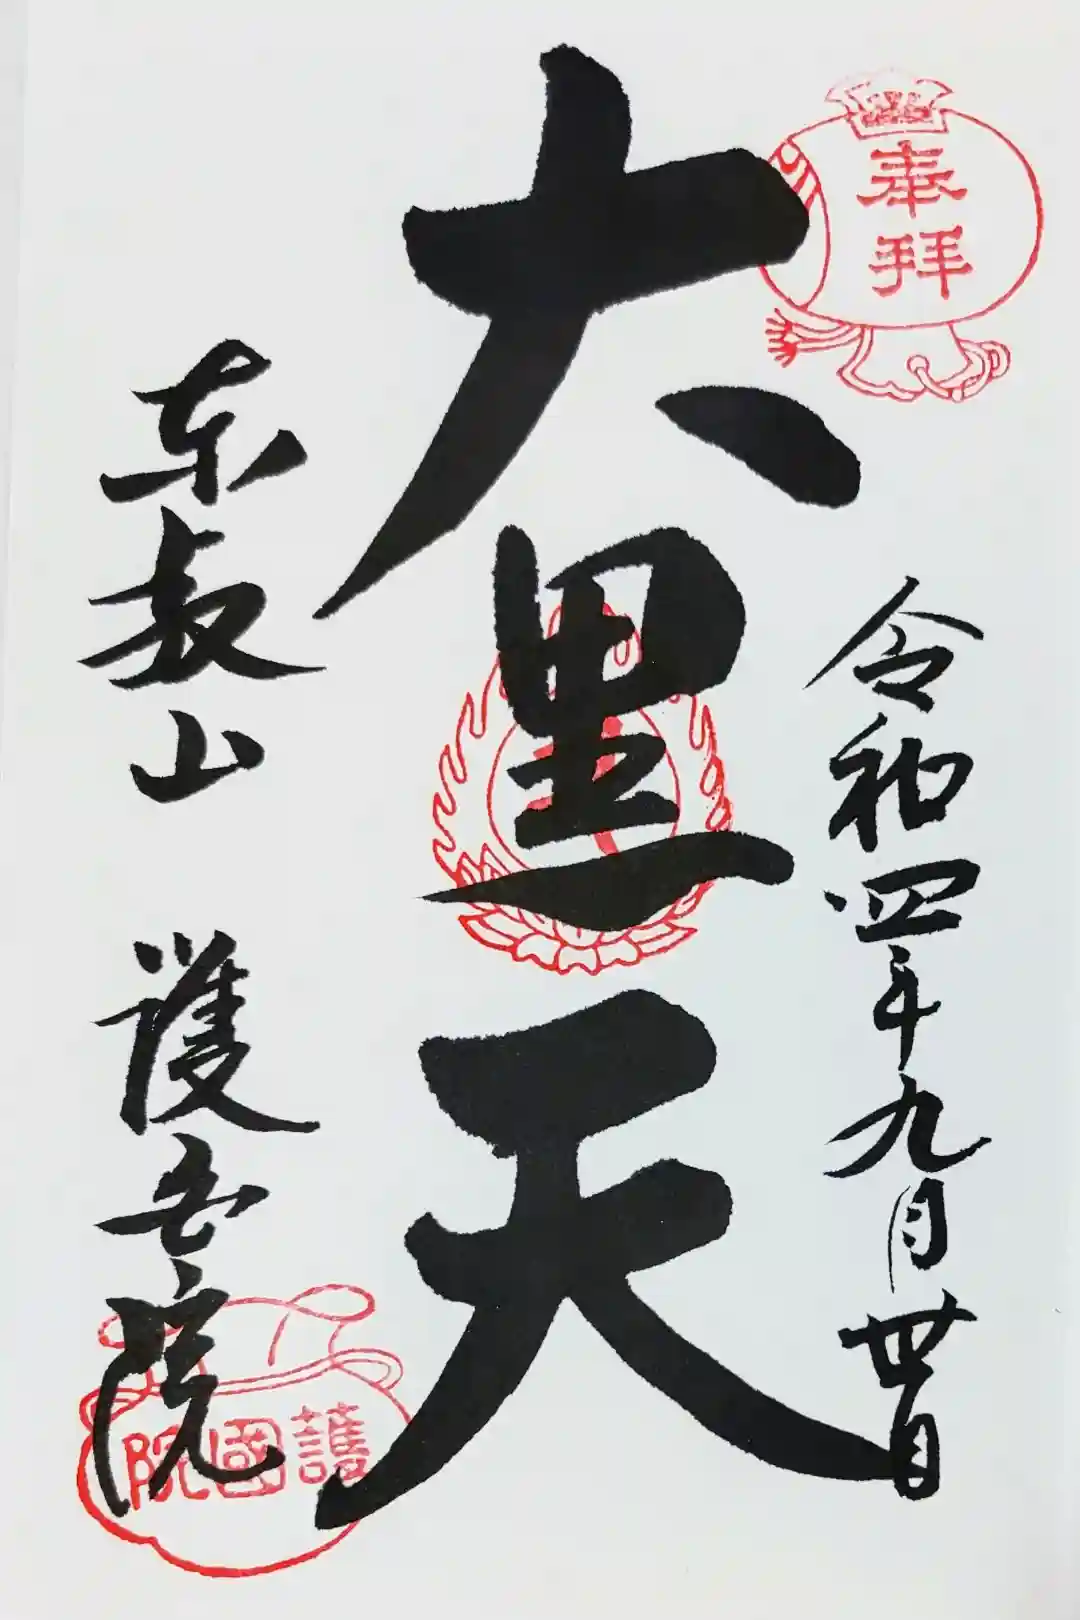 奉拝
令和四年九月丗日
大黒天
東叡山 護国院
護國院